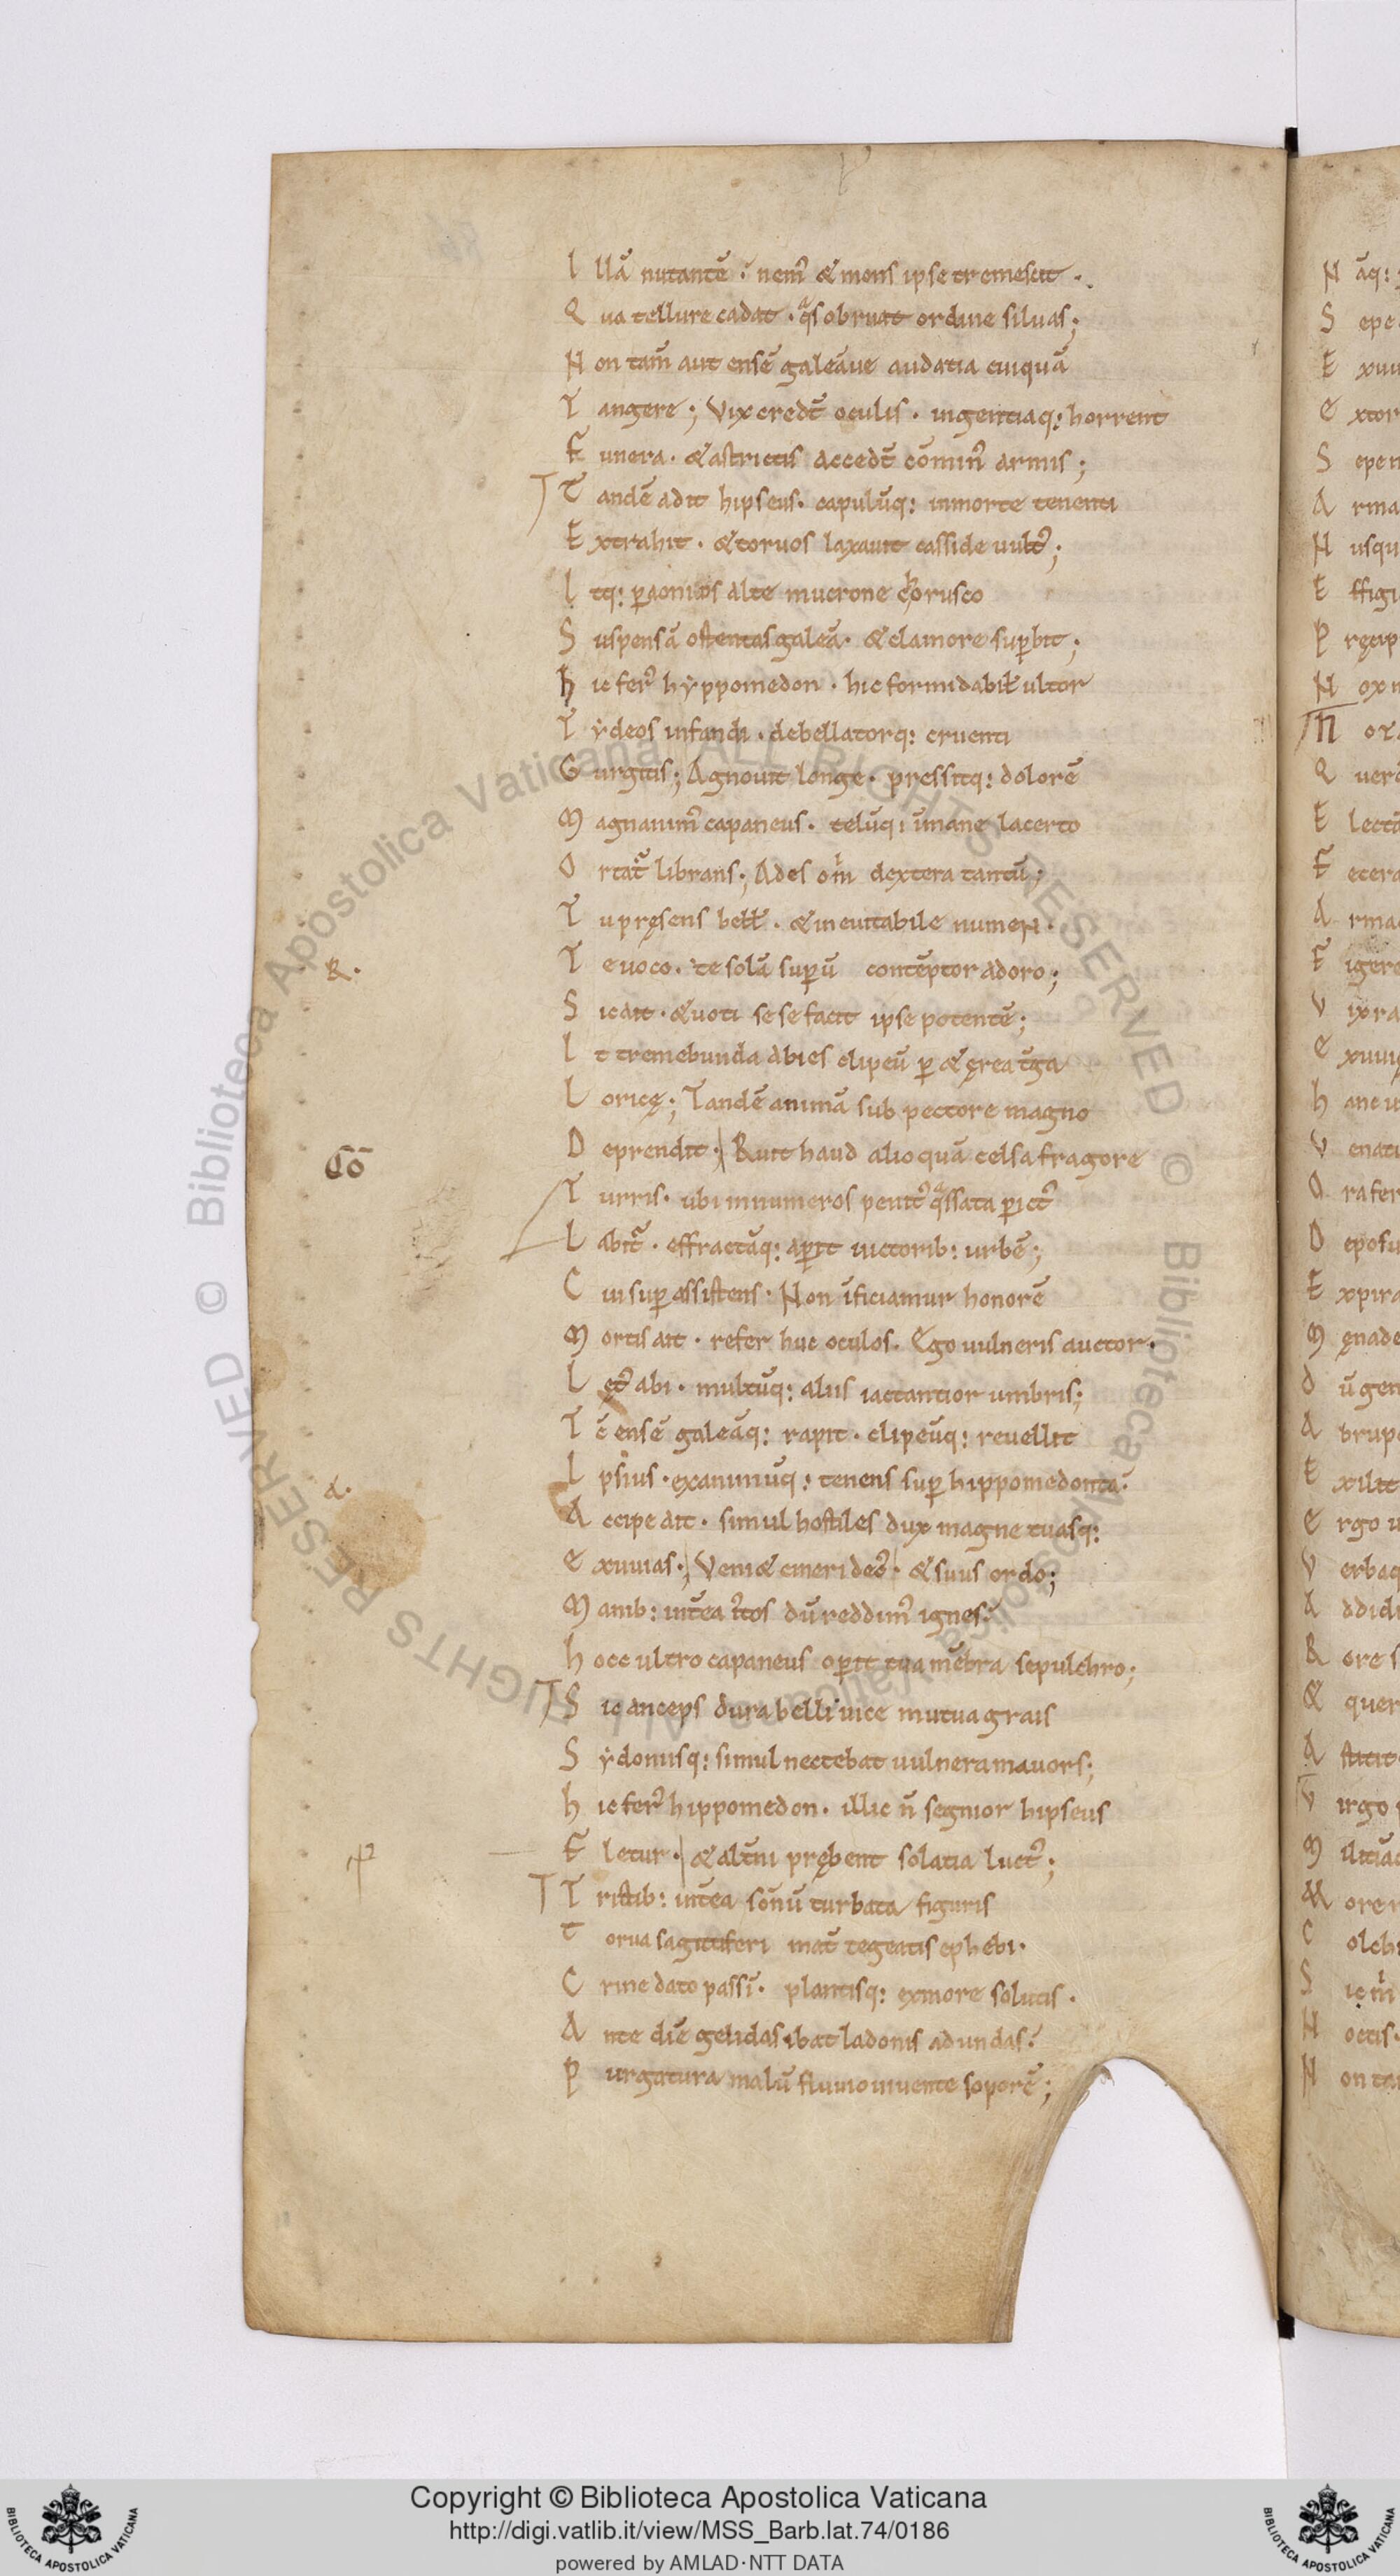 I llā nutantē · nem᷒ & mons ipse tremescit ·
Q ua tellure cadat · qͣs obruat ordine siluas;
N on tam̄ aut ensē galeāue audatia cuiquā
T angere; Vix credt̄ oculis · ingentiaq: horrent
F unera · & astrictis accedt̄ cōmin᷒ armis;
T andē adit hipseus · capulūq: in morte tenenti
E xtrahit · & toruos laxauit casside uult᷒;
I tq: p̄ aonios alte mucrone chorusco
S uspensā ostentas galeā · & clamore sup̄bit;
h ic fer᷒ hẏppomedon · hic formidabil̄ ultor
T ẏdeos infandi · debellatorq: cruenti
G urgitis; Agnouit longe · pressitq: dolorē
M agnanim᷒ capaneus · telūq: īmane lacerto
O rtat᷒ librans; Ades om̄ dextera tantū;
T u pręsens bell̄ · & ineuitabile numen ·
T e uoco · te solā sup̄ū contēptor adoro;
S ic ait · & uoti se se facit ipse potentē;
I t tremebunda abies clipeū p̄ & ęrea t̄ga
L oricę; Tandē animā sub pectore magno
D eprendit; Ruit haud alio quā celsa fragore
T urris · ubi innumeros penit᷒ qͣssata p̄ ict᷒
L abit᷒ · effractāq: ap̄it uictorib: urbē;
C ui sup̄ assistens · Non īficiamur honorē
M ortis ait · refer huc oculos · Ego uulneris auctor ·
L ęt᷒ abi · multūq: aliis iactantior umbris;
T c̄ ensē galeāq: rapit · clipeūq: reuellit
I psius · exanimūq: tenens sup̄ hippomedonta ·
A ccipe ait · simul hostiles dux magne tuasq:
E xuuias; Veni& cineri dec᷒ · & suus ordo;
M anib: int̄ea īstos dū reddim᷒ ignes ·
h occ ultro capaneus op̄it tua mēbra sepulchro;
S ic anceps dura belli uice mutua grais
S ẏdoniisq: simul nectebat uulnera mauors;
h ic fer᷒ hippomedon · illic n̄ segnior hipseus
F letur · & alt̄ni prębent solatia luct᷒;
T ristib: int̄ea sōnū turbata figuris
T orua sagittiferi mat̄ tegeatis ephebi ·
C rine dato passī · plantisq: ex more solutis ·
A nte diē gelidas ibat ladonis ad undas ·
P urgatura malū fluuio uiuente soporē;
R.
Cō
a.
Copyright © Biblioteca Apostolica Vaticana
http://digi.vatlib.it/view/MSS_Barb.lat.74/0186
powered by AMLAD·NTT DATA